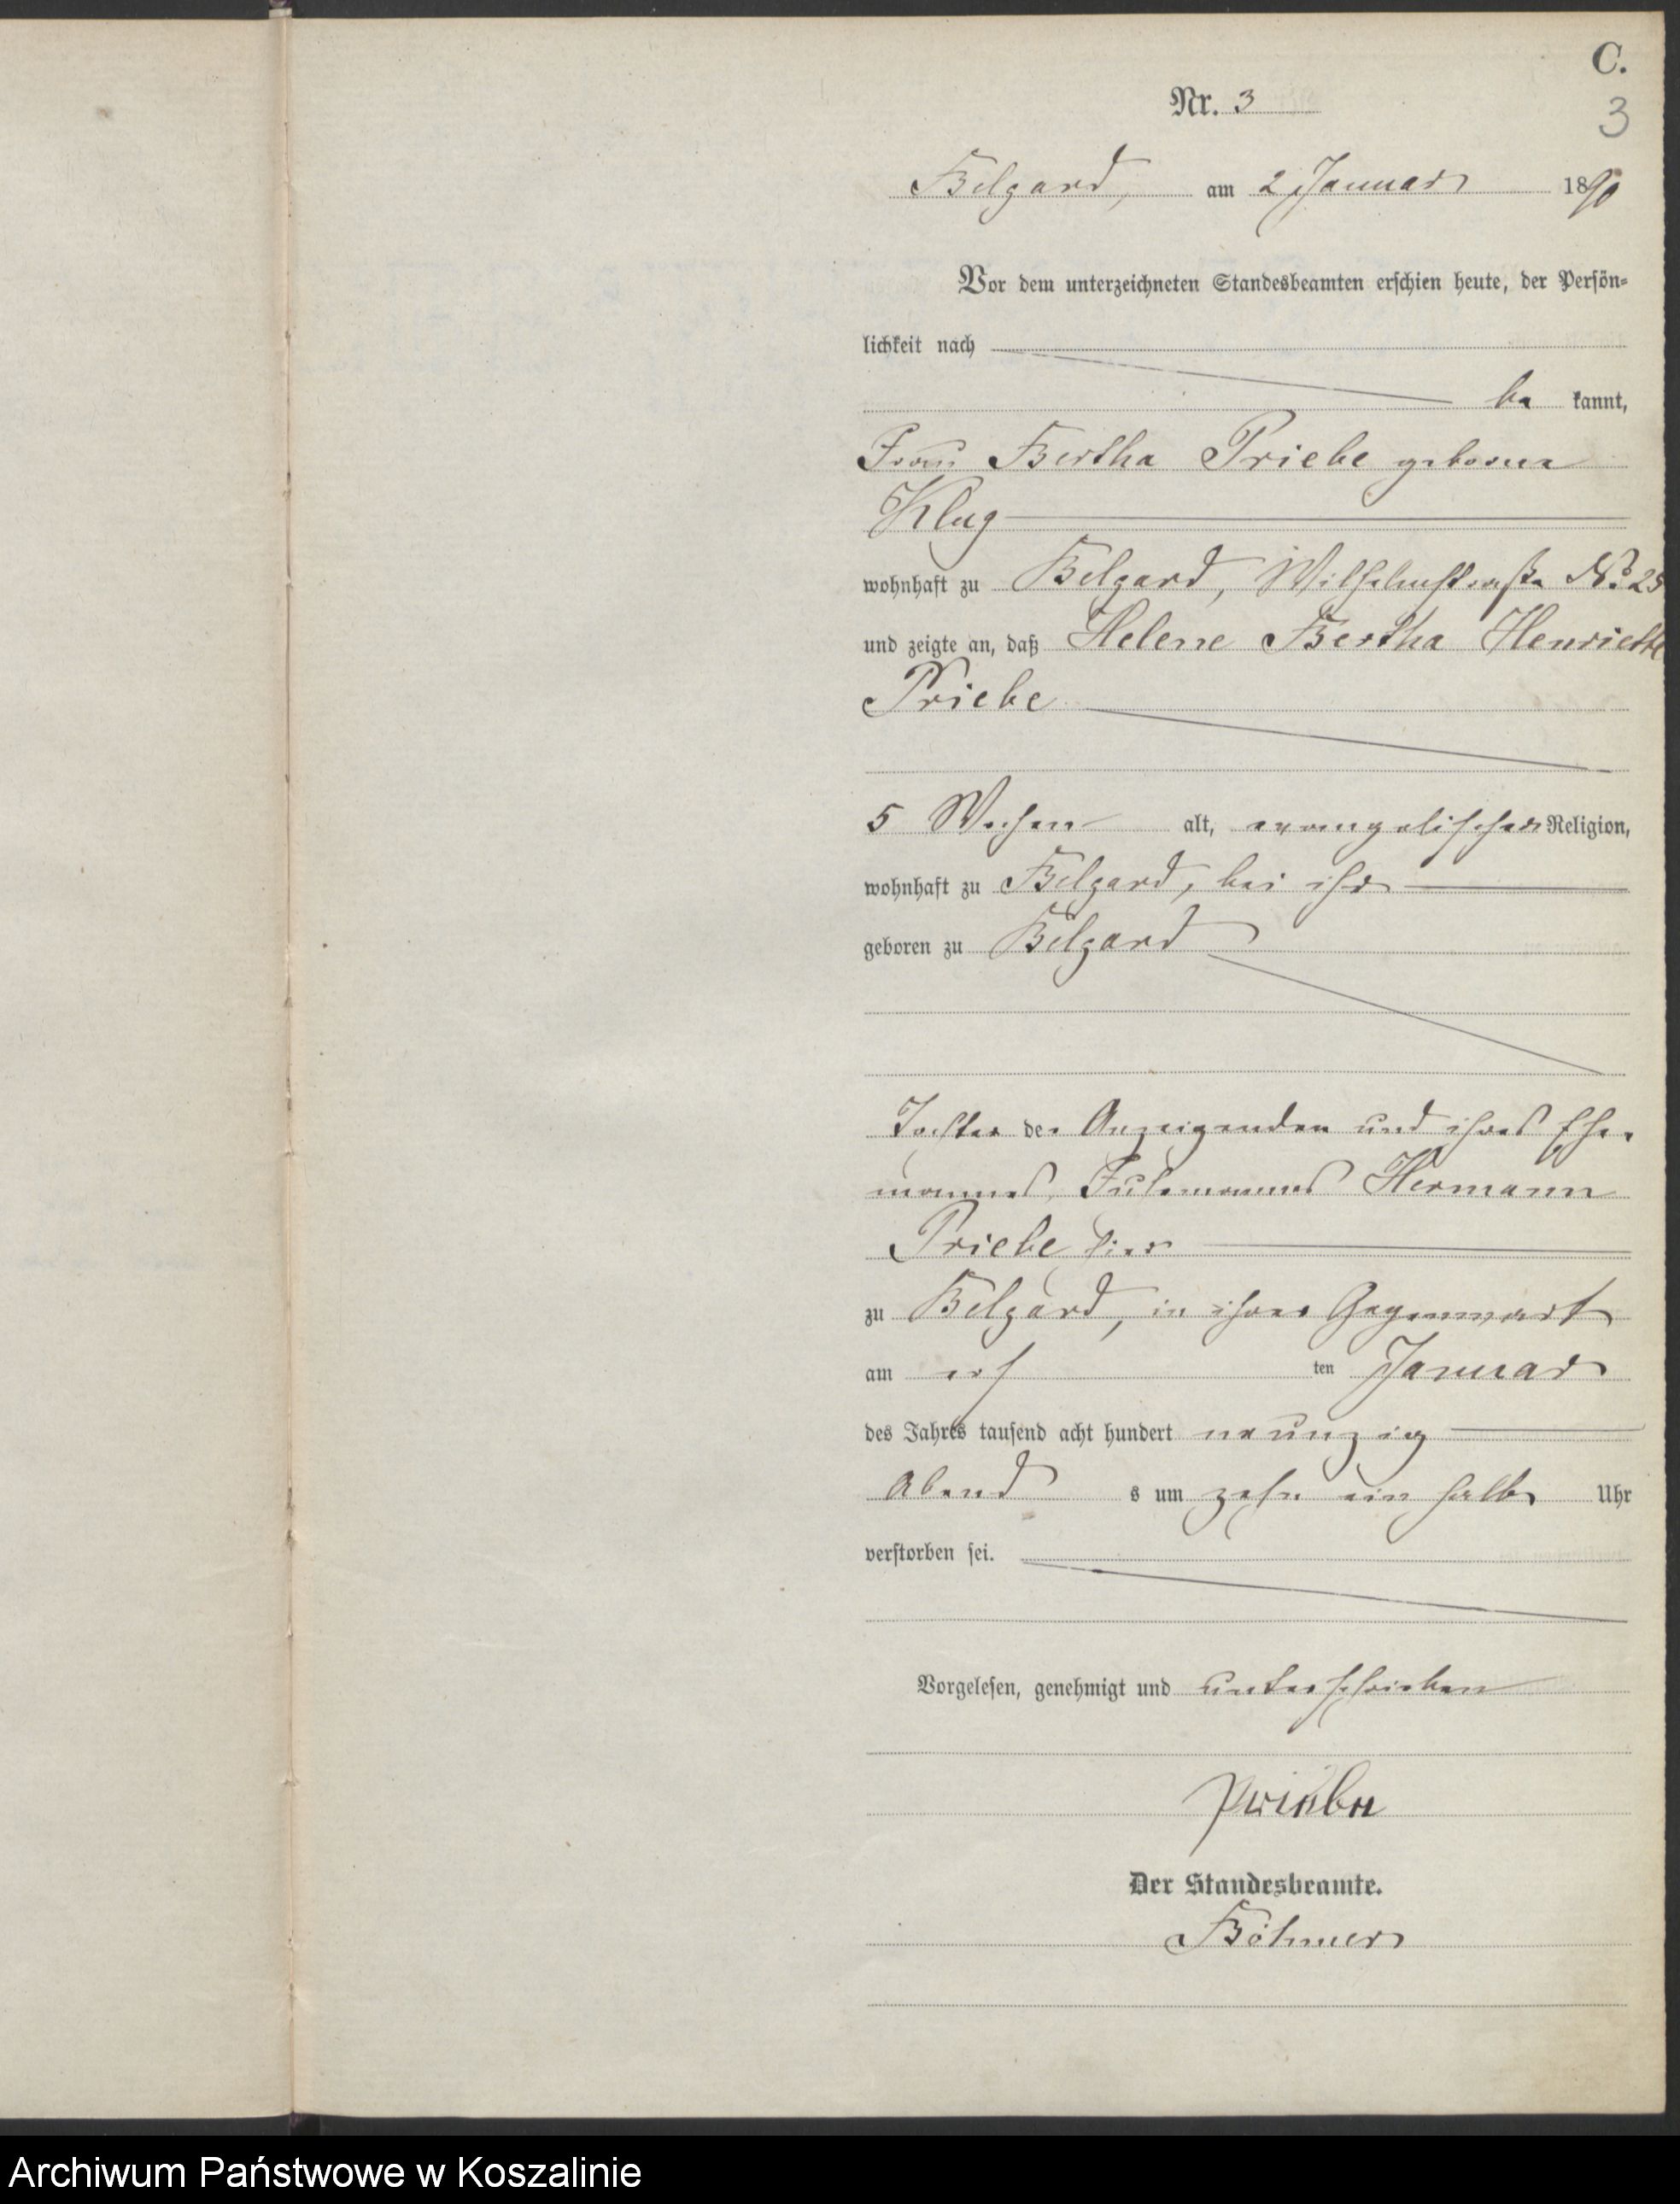 C.
Nr. 3
3
Belgard, am 2 Januar 1890
Vor dem unterzeichneten Standesbeamten erschien heute, der Persön-
lichkeit nach
be kannt,
Frau Bertha Priebe geborne
Klug
wohnhaft zu Belgard, Wilhelmstraße No. 25
und zeigte an, daß Helene Bertha Henriette
Priebe
5 Wochen alt, evangelischer Religion,
wohnhaft zu Belgard, bei ihr
geboren zu Belgard
Tochter der Anzeigenden und ihres Ehe-
mannes, Hermann
Priebe hier
zu Belgard, in ihrer Gegenwart
am ers ten Januar
des Jahres tausend acht hundert neunzig
Abend s um zehn ein halb Uhr
verstorben sei.
Vorgelesen, genehmigt und unterschrieben
Priebe
Der Standesbeamte.
Böhmer
Archiwum Państwowe w Koszalinie